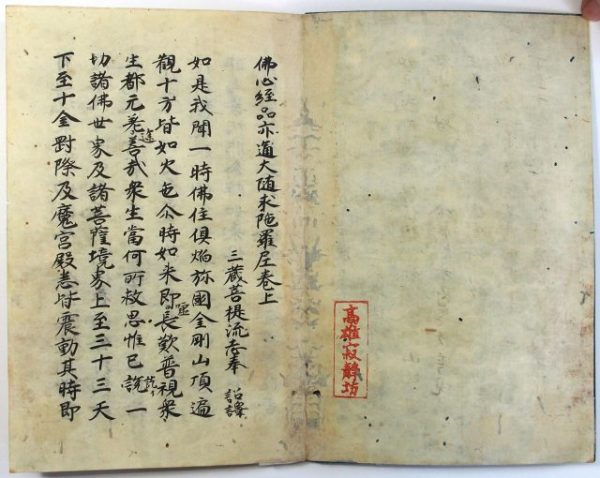 高雄寂静坊
佛心經品亦通大随求陁羅尼卷上
三蔵菩提流志奉 詔譯
如是我聞一時佛住俱焔弥國金剛山頂遍
觀十方皆如火色尒時如来即長歎普視衆
生都元善哉衆生當何所救思惟已說一
切諸佛世界及諸菩薩境界上至三十三天
下至十金對際及魔宮殿悉皆震動其時即